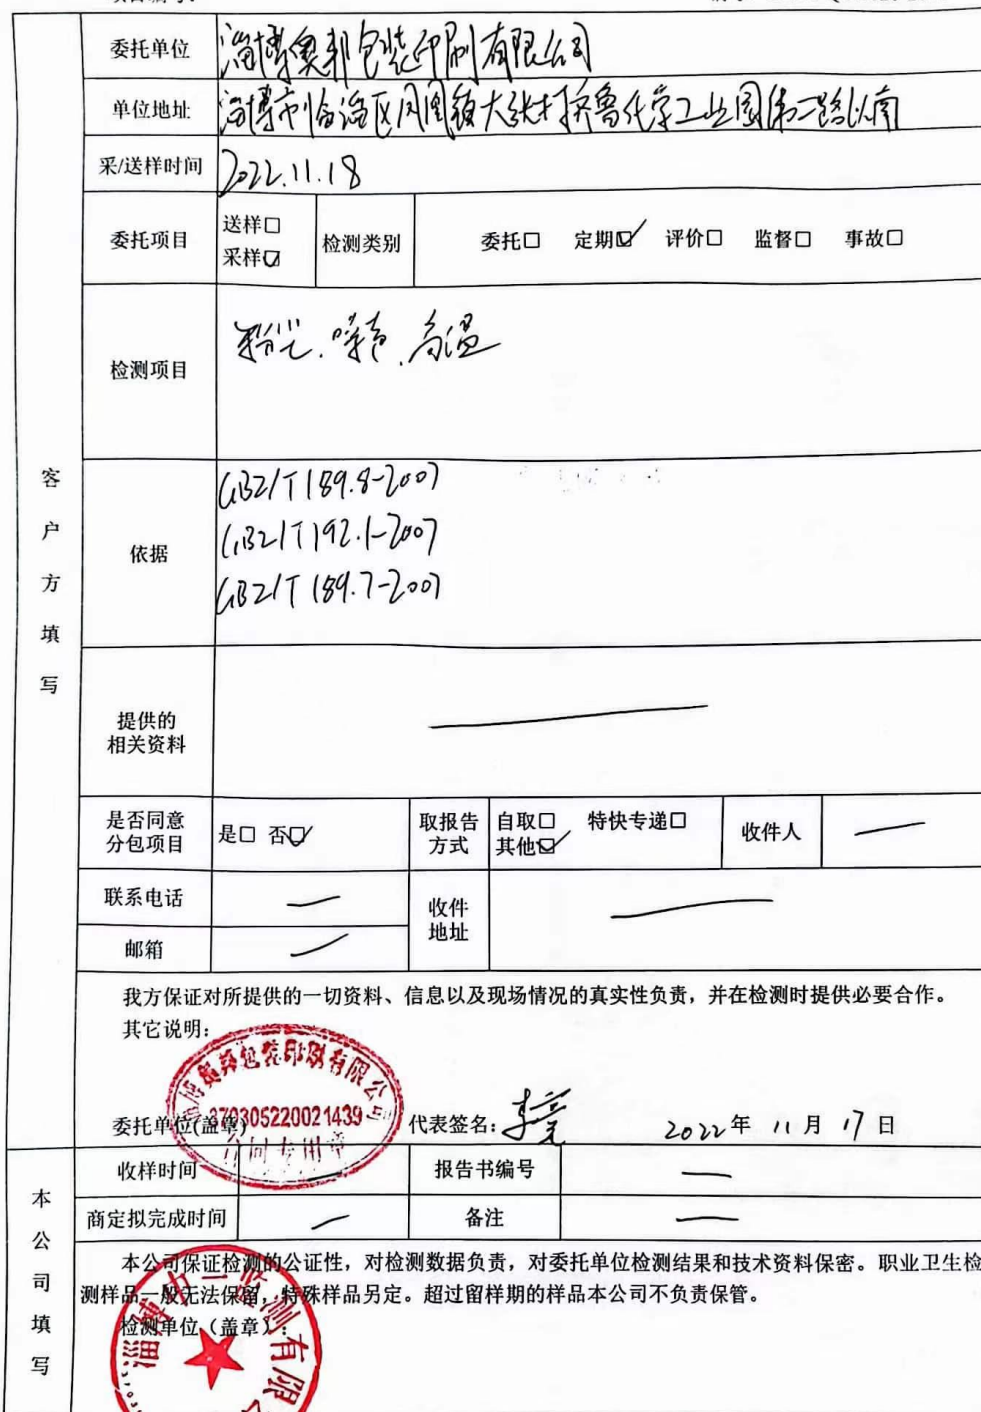 委托单位 淄博奥邦包装印刷有限公司
单位地址 淄博市临淄区凤凰镇大张村齐鲁化学工业园第二路以南
采/送样时间 2022.11.18
委托项目 送样□ 采样☑ 检测类别 委托□ 定期☑ 评价□ 监督□ 事故□
检测项目 粉尘、噪声、高温
客户方填写
依据 GBZ/T 189.8-2007
GBZ/T 192.1-2007
GBZ/T 189.7-2007
提供的
相关资料 —
是否同意
分包项目 是□ 否☑ 取报告
方式 自取□ 特快专递□
其他☑ 收件人 —
联系电话 — 收件
地址 —
邮箱 —
我方保证对所提供的一切资料、信息以及现场情况的真实性负责，并在检测时提供必要合作。
其它说明：
淄博奥邦包装印刷有限公司
370305220021439
合同专用章
委托单位(盖章) 代表签名: 2022年 11月 17日
本公司填写
收样时间 报告书编号 —
商定拟完成时间 — 备注 —
本公司保证检测的公证性，对检测数据负责，对委托单位检测结果和技术资料保密。职业卫生检
测样品一般无法保留，特殊样品另定。超过留样期的样品本公司不负责保管。
检测单位（盖章）: